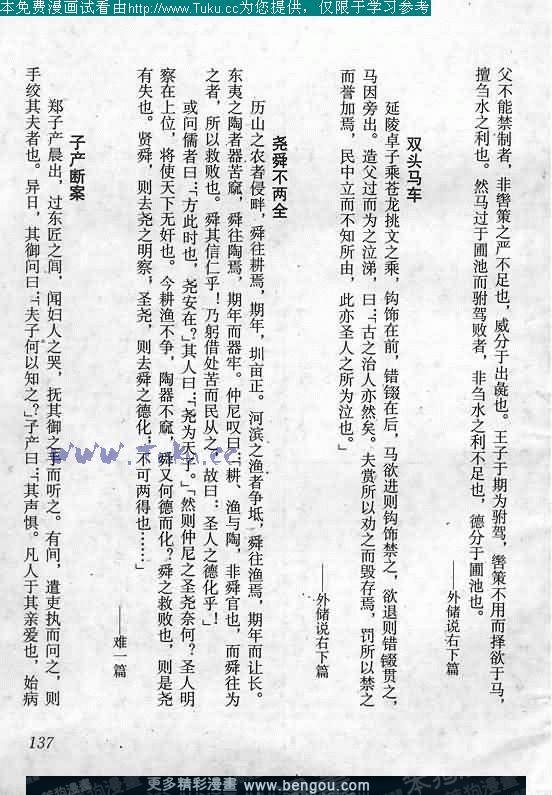 本免费漫画试看由http://www.Tuku.cc为您提供，仅限于学习参考
父不能禁制者，非辔策之严不足也，威分于出彘也。王子于期为驸驾，辔策不用而择欲于马，
擅刍水之利也。然马过于圃池而驸驾败者，非刍水之利不足也，德分于圃池也。
——外储说右下篇
双头马车
延陵卓子乘苍龙挑文之乘，钩饰在前，错錣在后，马欲进则钩饰禁之，欲退则错錣贯之，
马因旁出。造父过而为之泣涕，曰：“古之治人亦然矣。夫赏所以劝之而毁存焉，罚所以禁之
而誉加焉，民中立而不知所由，此亦圣人之所为泣也。”
——外储说右下篇
尧舜不两全
历山之农者侵畔，舜往耕焉，期年，甽亩正。河滨之渔者争坻，舜往渔焉，期年而让长。
东夷之陶者器苦窳，舜往陶焉，期年而器牢。仲尼叹曰：“耕、渔与陶，非舜官也，而舜往为
之者，所以救败也。舜其信仁乎！乃躬借处苦而民从之，故曰：圣人之德化乎！”
或问儒者曰：“方此时也，尧安在？”其人曰：“尧为天子。”“然则仲尼之圣尧奈何？圣人明
察在上位，将使天下无奸也。今耕渔不争，陶器不窳，舜又何德而化？舜之救败也，则是尧
有失也。贤舜，则去尧之明察，圣尧，则去舜之德化：不可两得也……”
——难一篇
子产断案
郑子产晨出，过东匠之闾，闻妇人之哭，抚其御之手而听之。有间，遣吏执而问之，则
手绞其夫者也。异日，其御问曰：“夫子何以知之？”子产曰：“其声惧。凡人于其亲爱也，始病
www.Tuku.cc
137
更多精彩漫畫 www.bengou.com